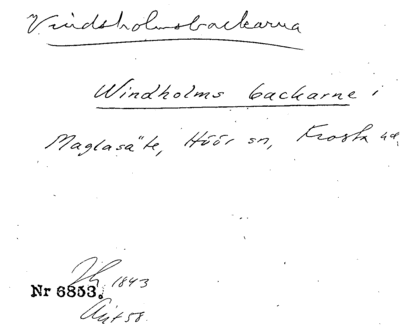 Vindsholmsbackarna
Windholms backarne i
Maglasäte, Höör sn, Frosta hd.
1843
Nr 6853.
58